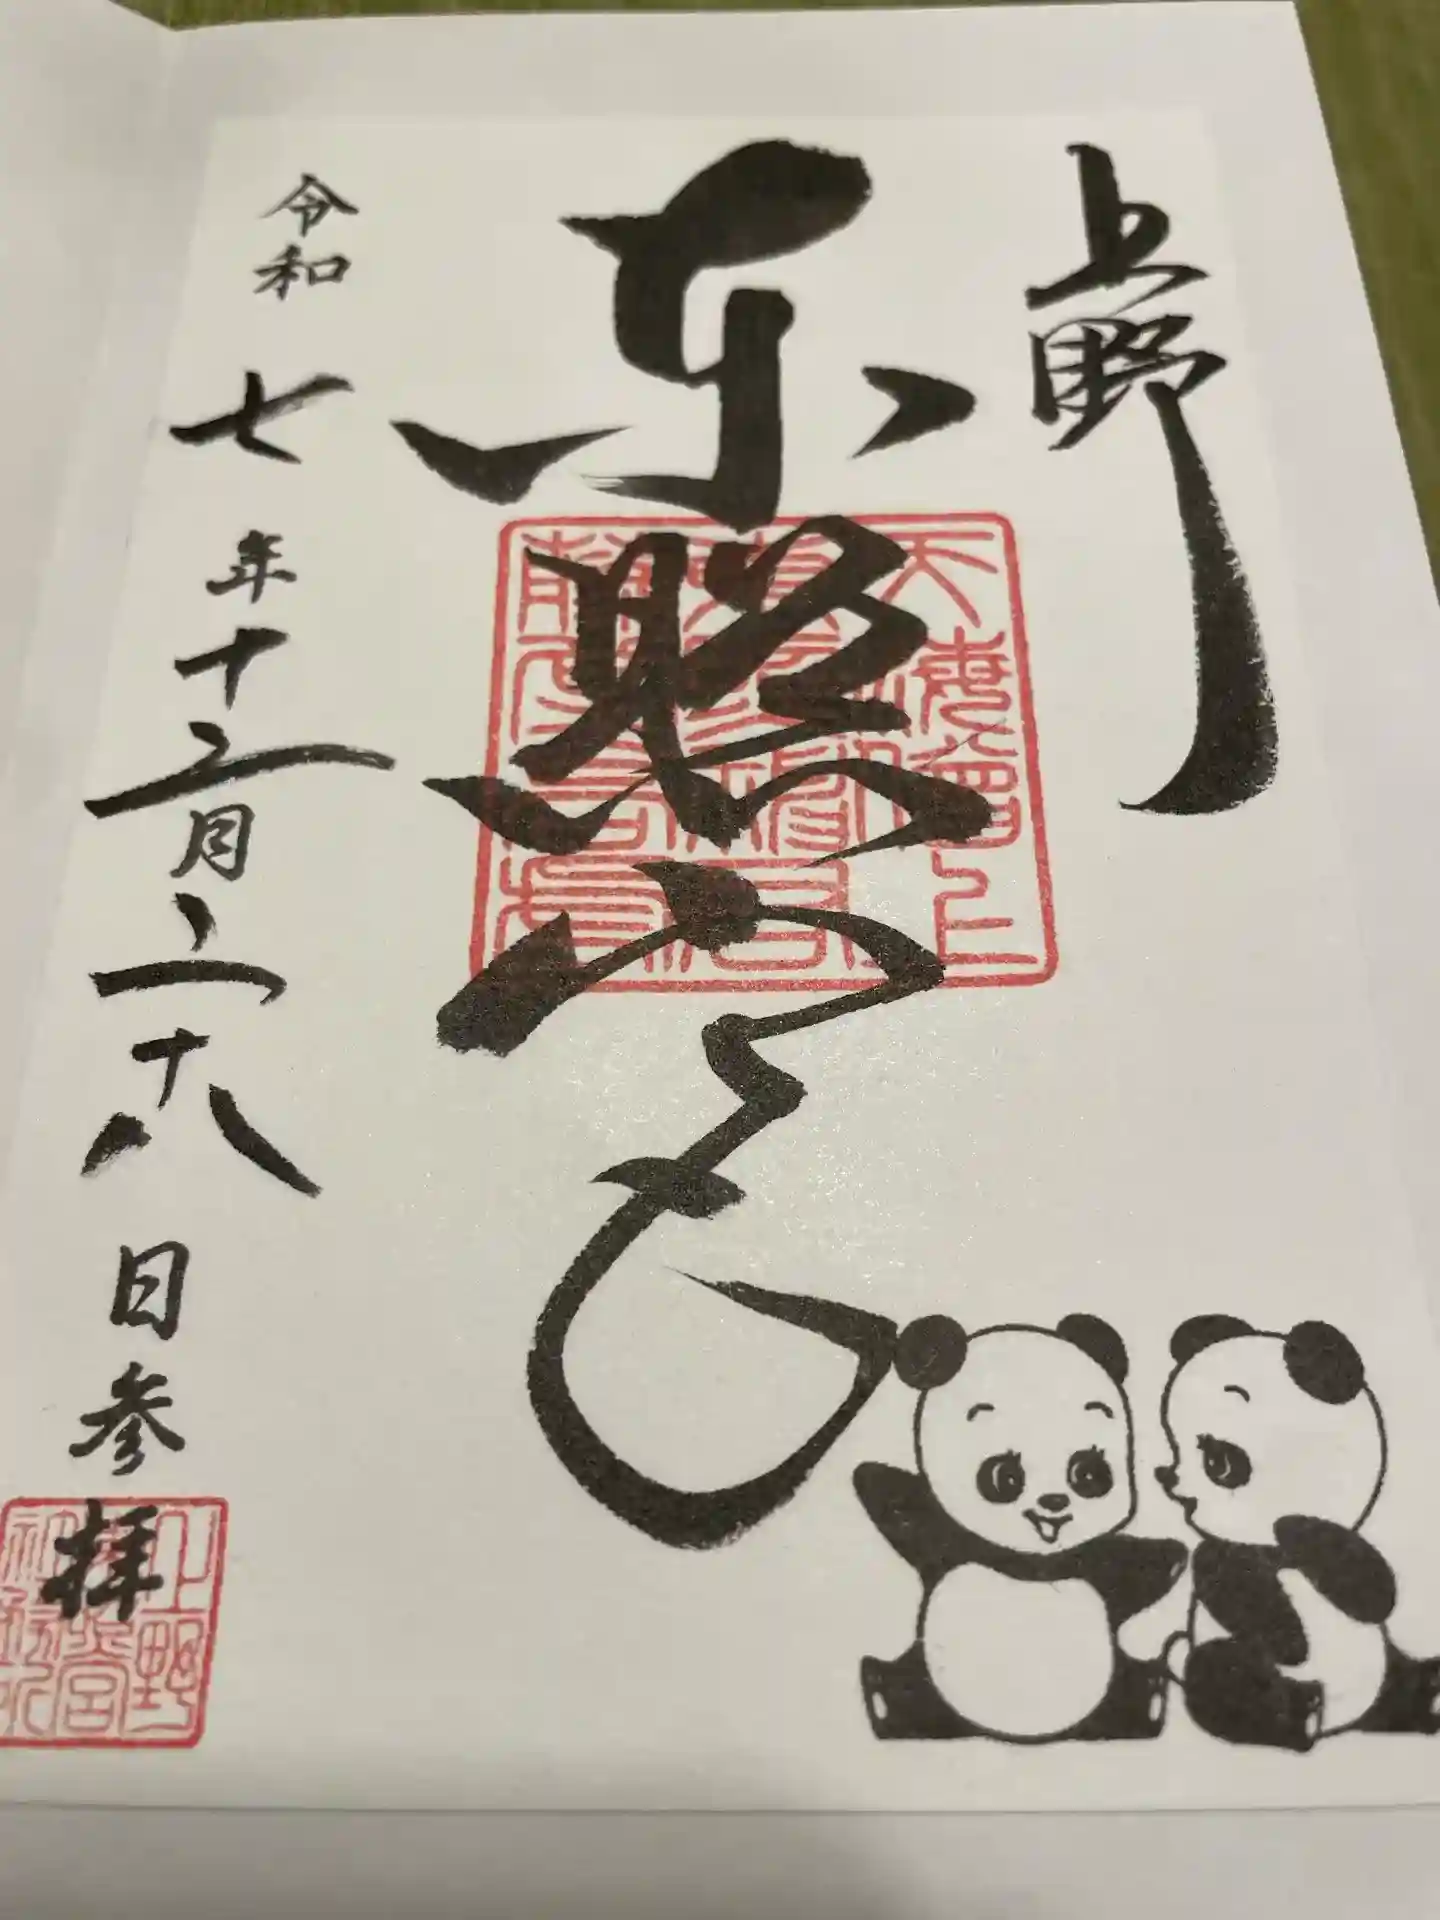 上野
東照宮
令和七年十二月二十八日参拝
上野
東照宮
社務所